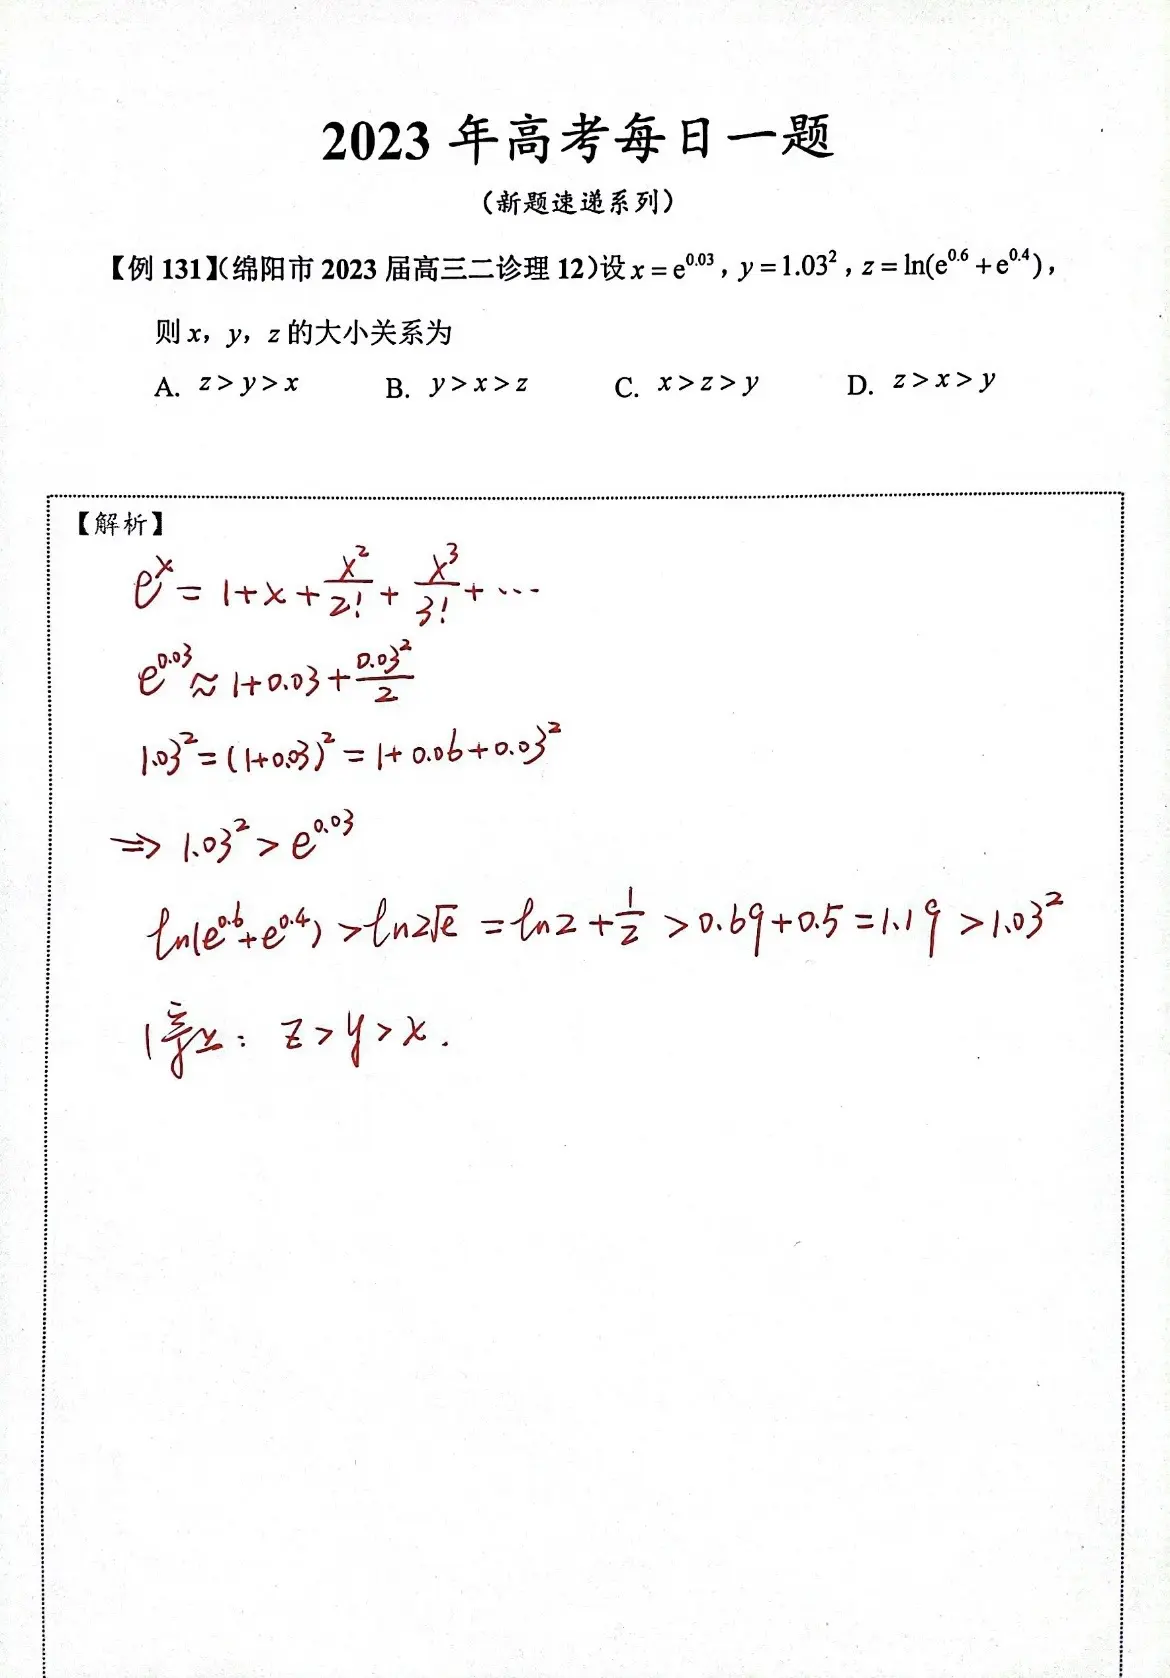 2023 年高考每日一题
（新题速递系列）
【例 131】（绵阳市 2023 届高三二诊理 12）设 x = e^0.03，y = 1.03²，z = ln(e^0.6 + e^0.4)，
则 x，y，z 的大小关系为
A. z > y > x B. y > x > z C. x > z > y D. z > x > y
【解析】
e^x = 1 + x + x²/2! + x³/3! + ···
e^0.03 ≈ 1 + 0.03 + 0.03²/2
1.03² = (1+0.03)² = 1 + 0.06 + 0.03²
⇒ 1.03² > e^0.03
ln(e^0.6 + e^0.4) > ln2√e = ln2 + 1/2 > 0.69 + 0.5 = 1.19 > 1.03²
综上: z > y > x.